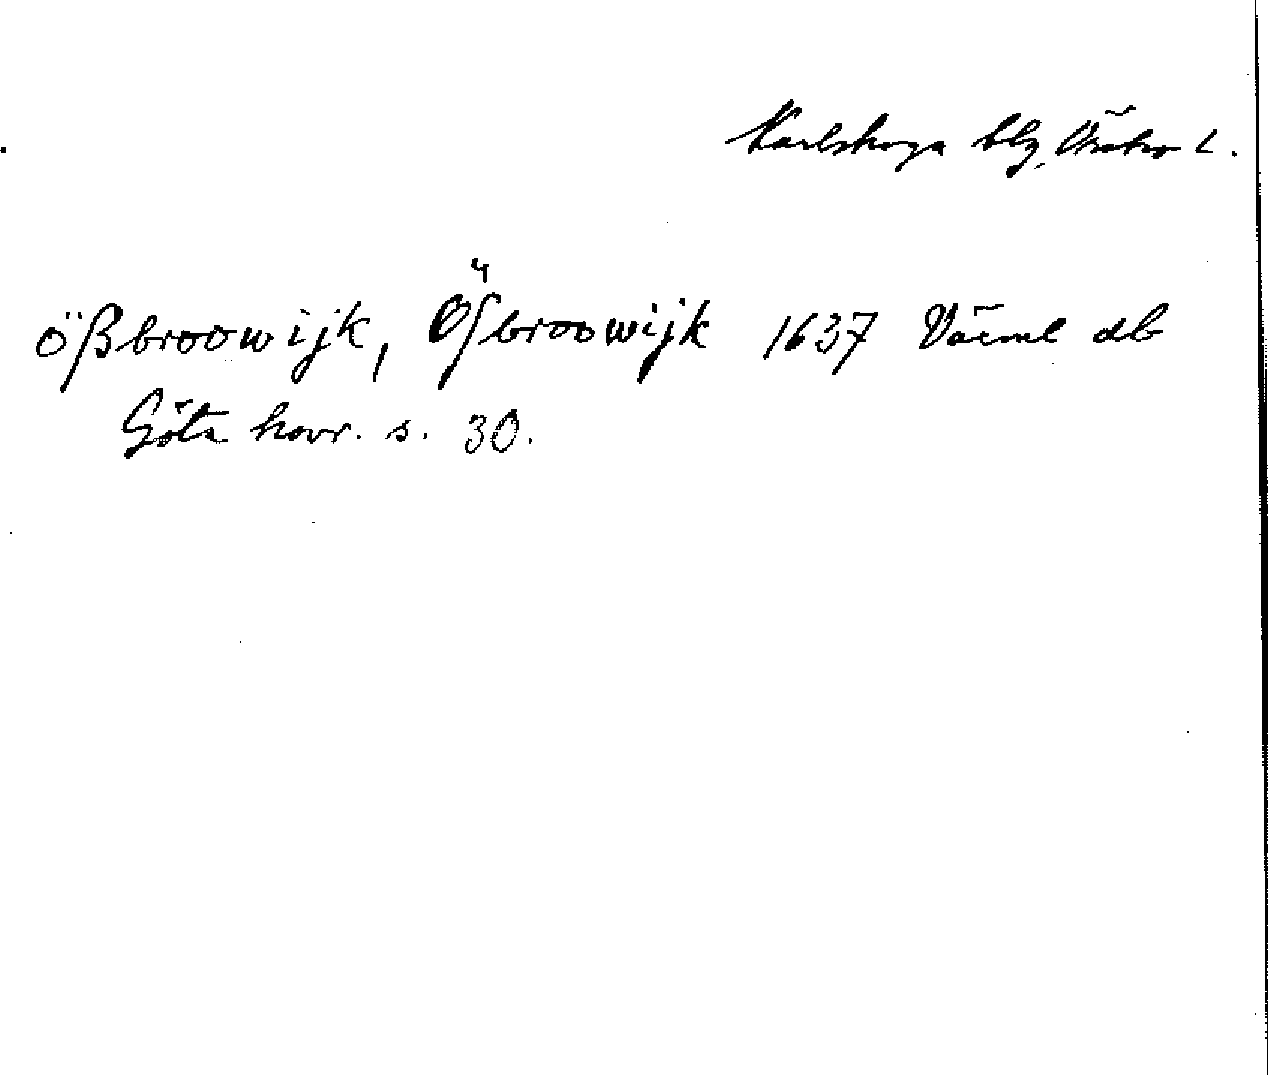 Karlskoga blg, Örebro l.
ößbroowijk, Öſbroowijk 1637 Värml db
Göta hovr. s. 30.